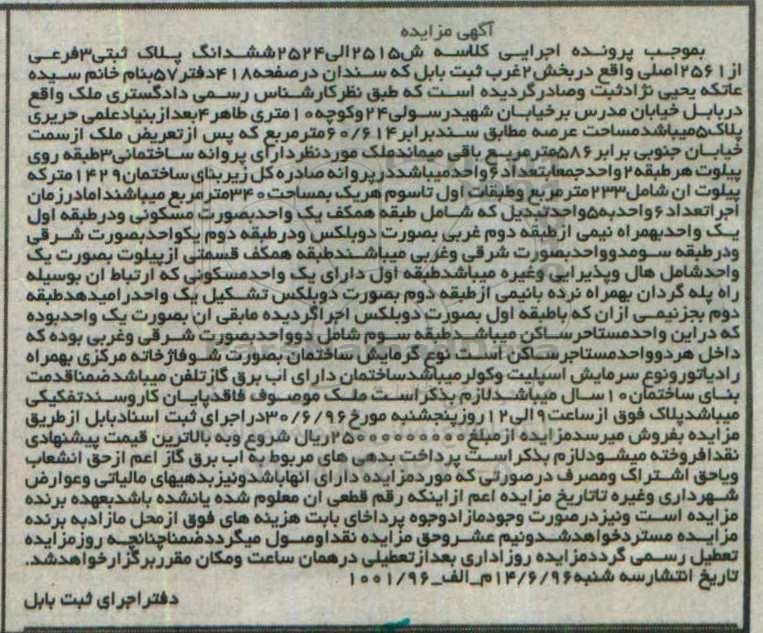 آگهی مزایده
بموجب پرونده اجرایی کلاسه ش۲۵۱۵الی۲۵۲۴ششدانگ پلاک ثبتی۳فرعی
از۲۵۶۱اصلی واقع دربخش۲غرب ثبت بابل که سندان درصفحه۴۱۸دفتر۵۷بنام خانم سیده
عاتکه یحیی نژادثبت وصادرگردیده است که طبق نظرکارشناس رسمی دادگستری ملک واقع
دربابل خیابان مدرس برخیابان شهیدرسولی۲۴وکوچه۱۰متری طاهر۴بعدازبنیادعلمی حریری
پلاک۵میباشدمساحت عرصه مطابق سندبرابر۶۰/۶۱۴مترمربع که پس ازتعریض ملک ازسمت
خیابان جنوبی برابر۵۸۶مترمربع باقی میماندملک موردنظردارای پروانه ساختمانی۳طبقه روی
پیلوت هرطبقه۲واحدجمعابتعداد۶واحدمیباشددرپروانه صادره کل زیربنای ساختمان۱۴۲۹مترکه
پیلوت ان شامل۲۳۳متر مربع وطبقات اول تاسوم هریک بمساحت۳۴۰مترمربع میباشندامادرزمان
اجراتعداد۶واحدبه۵واحدتبدیل که شامل طبقه همکف یک واحدبصورت مسکونی ودرطبقه اول
یک واحدبهمراه نیمی ازطبقه دوم غربی بصورت دوبلکس ودرطبقه دوم یکواحدبصورت شرقی
ودرطبقه سومدوواحدبصورت شرقی وغربی میباشندطبقه همکف قسمتی ازپیلوت بصورت یک
واحدشامل هال وپذیرایی وغیره میباشدطبقه اول دارای یک واحدمسکونی که ارتباط ان بوسیله
راه پله گردان بهمراه نرده بانیمی ازطبقه دوم بصورت دوبلکس تشکیل یک واحدرامیدهدطبقه
دوم بجزنیمی ازان که باطبقه اول بصورت دوبلکس اجراگردیده مابقی ان بصورت یک واحدبوده
که دراین واحدمستاجرساکن میباشدطبقه سوم شامل دوواحدبصورت شرقی وغربی بوده که
داخل هردوواحدمستاجرساکن است نوع گرمایش ساختمان بصورت شوفاژخانه مرکزی بهمراه
رادیاتورونوع سرمایش اسپلیت وکولرمیباشدساختمان دارای اب برق گازتلفن میباشدضمناقدمت
بنای ساختمان۱۰سال میباشدلازم بذکراست ملک موصوف فاقدپایان کاروسندتفکیکی
میباشدپلاک فوق ازساعت۹الی۱۲روزپنجشنبه مورخ۳۰/۶/۹۶دراجرای ثبت اسنادبابل ازطریق
مزایده بفروش میرسدمزایده ازمبلغ۲۵۰۰۰۰۰۰۰۰۰ریال شروع وبه بالاترین قیمت پیشنهادی
نقدافروخته میشودلازم بذکراست پرداخت بدهی های مربوط به اب برق گاز اعم ازحق انشعاب
ویاحق اشتراک ومصرف درصورتی که موردمزایده دارای انهاباشدونیزبدهیهای مالیاتی وعوارض
شهرداری وغیره تاتاریخ مزایده اعم ازاینکه رقم قطعی ان معلوم شده یانشده باشدبعهده برنده
مزایده است ونیزدرصورت وجودمازادوجوه پرداخای بابت هزینه های فوق ازمحل مازادبه برنده
مزایده مستردخواهدشدونیم عشروحق مزایده نقداوصول میگرددضمناچنانچه روزمزایده
تعطیل رسمی گرددمزایده روزاداری بعدازتعطیلی درهمان ساعت ومکان مقرربرگزارخواهدشد.
تاریخ انتشارسه شنبه۱۴/۶/۹۶م_الف_۱۰۰۱/۹۶
دفتراجرای ثبت بابل